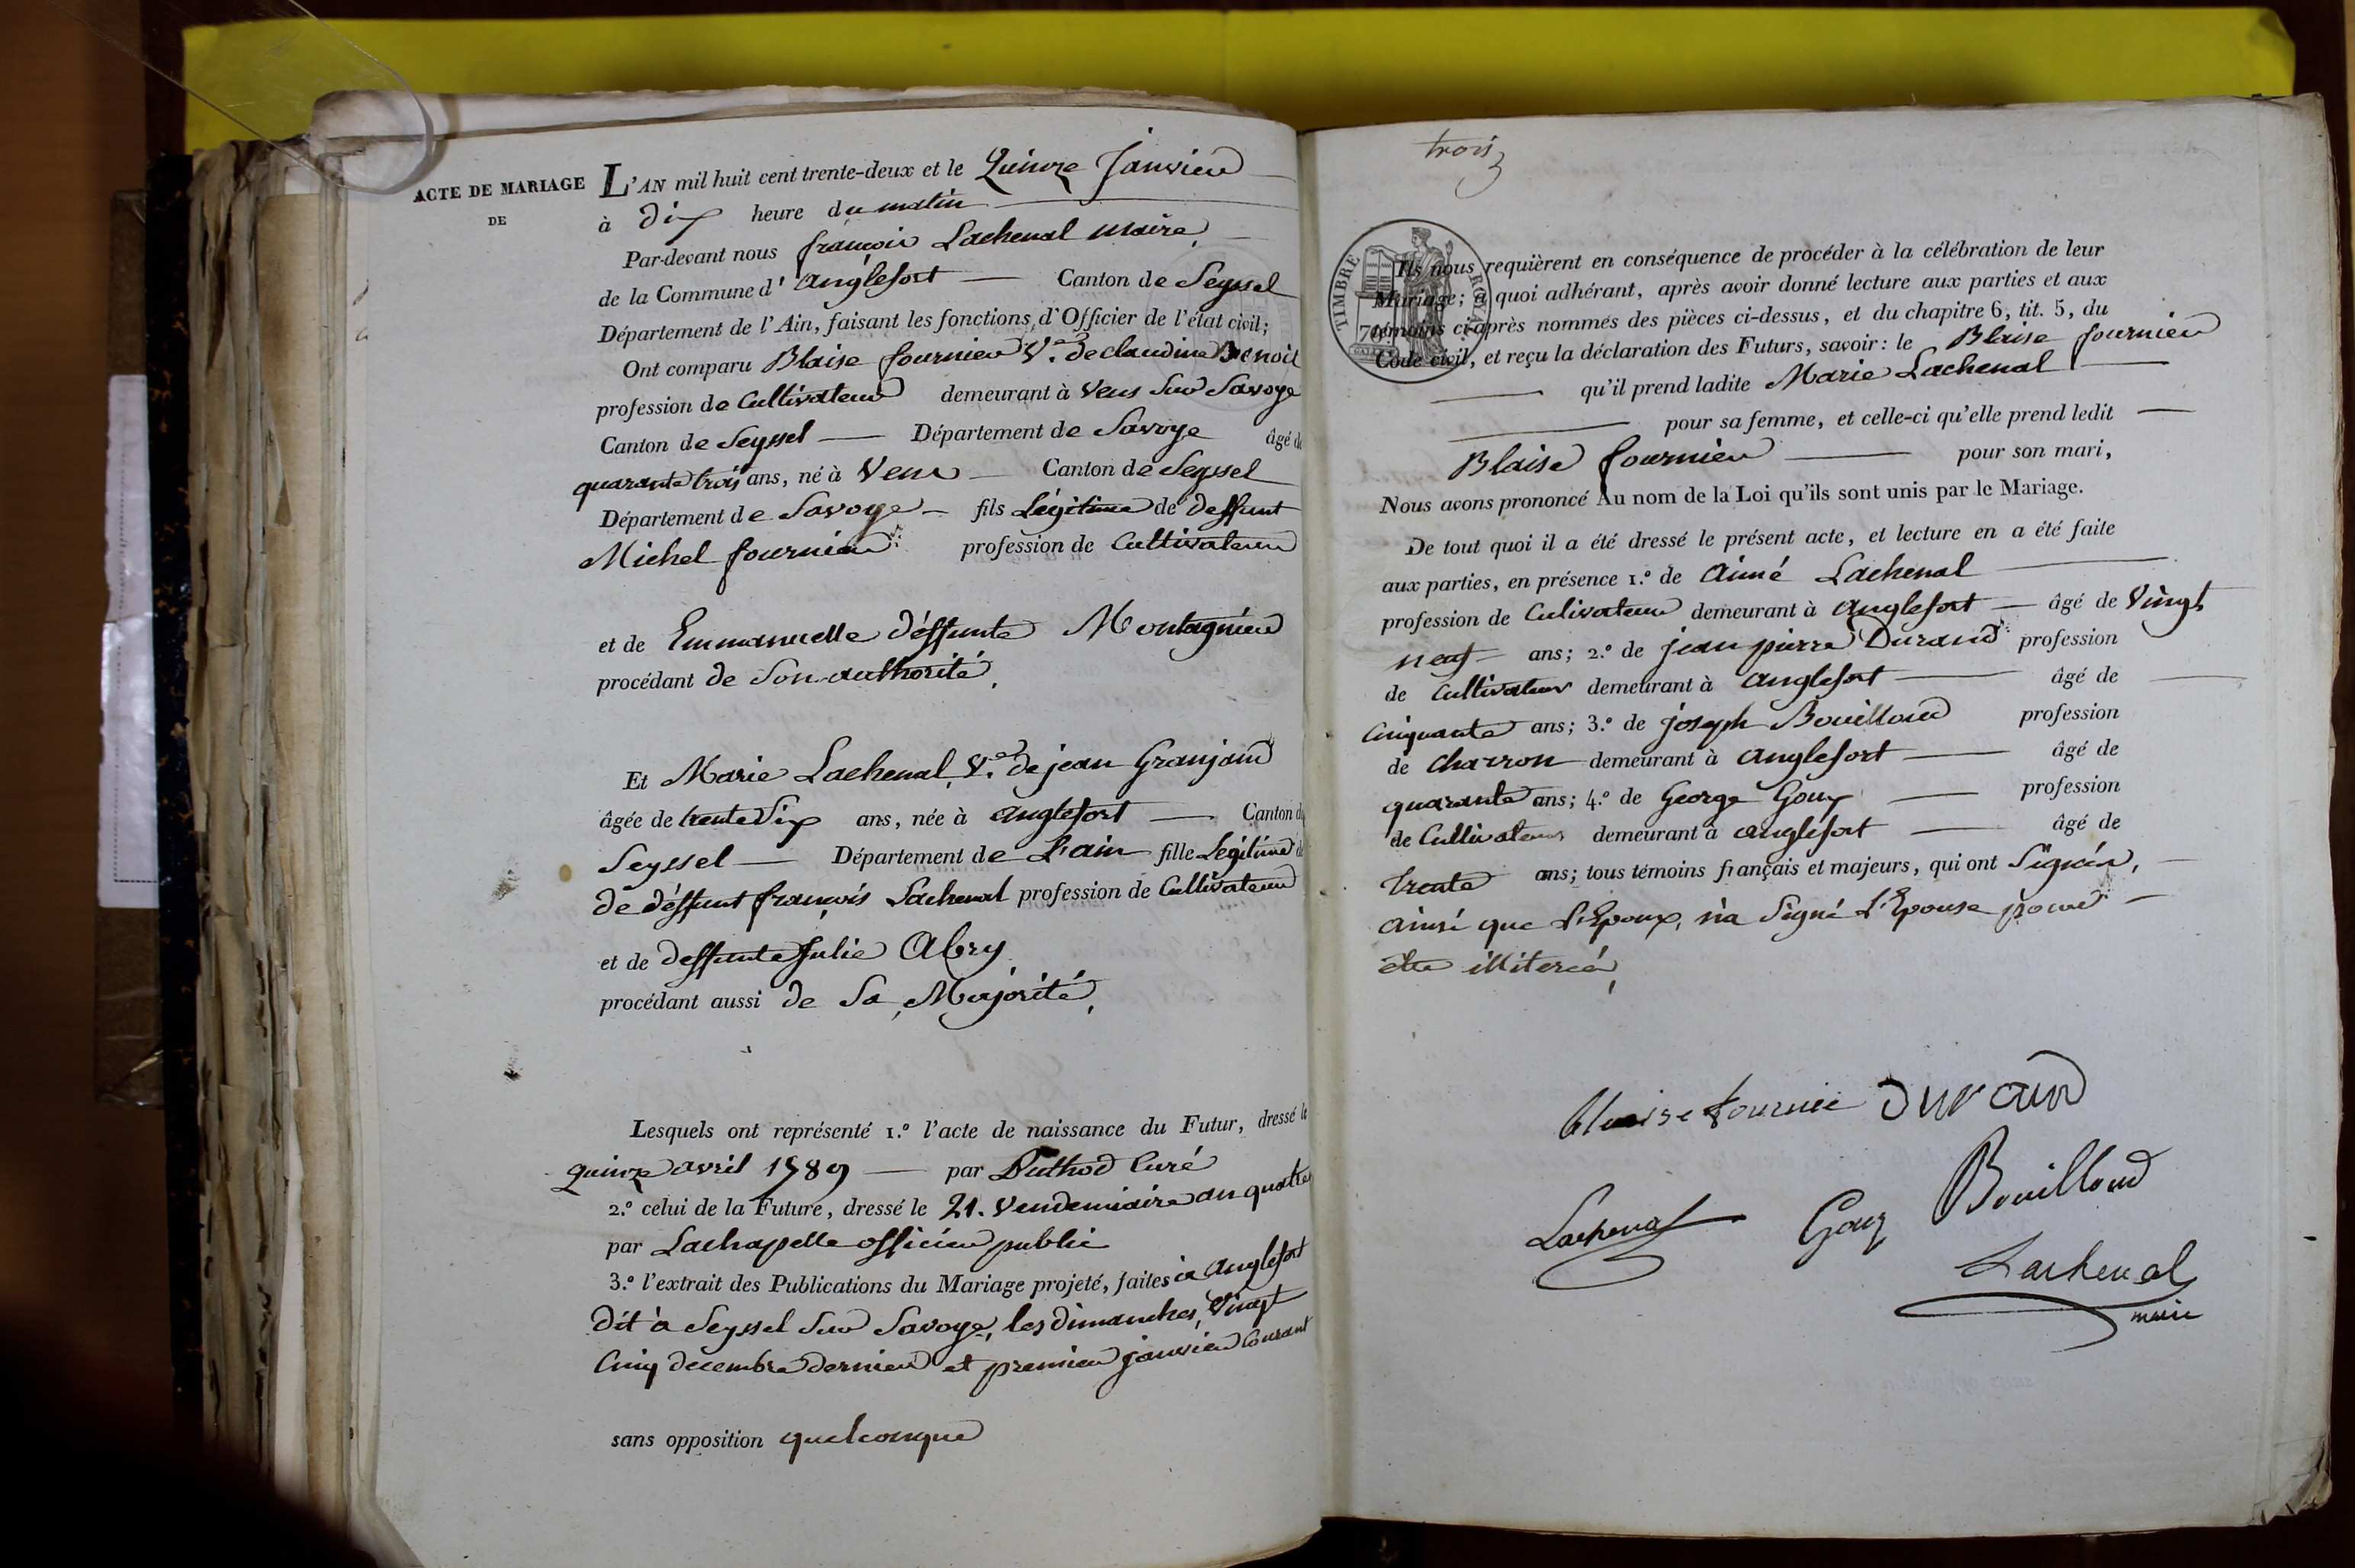 ACTE DE MARIAGE
DE
L'AN mil huit cent trente-deux et le Quinze Janvier
à dix heure du matin
Par-devant nous françois Lachenal maire,
de la Commune d'anglefort Canton de Seyssel
Département de l'Ain, faisant les fonctions d'Officier de l'état civil;
Ont comparu Blaise fournier V. de claudine Benoit
profession de Cultivateur demeurant à Vens Sur Savoye
Canton de Seyssel Département de Savoye âgé de
quarante trois ans, né à Vens Canton de Seyssel
Département de Savoye fils Légitime de deffunt
Michel fournier profession de Cultivateur
et de Emmanuelle déffunte Montagnier
procédant de Son authorité,
Et Marie Lachenal, V. de jean Granjand
âgée de trente Six ans, née à anglefort Canton de
Seyssel Département de L'ain fille Legitime de
de déffunt françois Lachenal profession de Cultivateur
et de deffunte Julie Abry
procédant aussi de Sa Majorité,
Lesquels ont représenté 1.º l'acte de naissance du Futur, dressé le
quinze avril 1789 par Duthod Curé
2.º celui de la Future, dressé le 21. Vendemiaire an quatre
par Lachapelle officier public
3.º l'extrait des Publications du Mariage projeté, faites à anglefort
dit à Seyssel Sur Savoye, les dimanches, Vingt
Cinq decembre dernier et premier janvier Courant
sans opposition quelconque
trois
3
TIMBRE ROYAL
70
Ils nous requièrent en conséquence de procéder à la célébration de leur
Mariage; à quoi adhérant, après avoir donné lecture aux parties et aux
témoins ci-après nommés des pièces ci-dessus, et du chapitre 6, tit. 5, du
Code civil, et reçu la déclaration des Futurs, savoir: le Blaise fournier
qu'il prend ladite Marie Lachenal
pour sa femme, et celle-ci qu'elle prend ledit
Blaise fournier pour son mari,
Nous avons prononcé Au nom de la Loi qu'ils sont unis par le Mariage.
De tout quoi il a été dressé le présent acte, et lecture en a été faite
aux parties, en présence 1.º de aimé Lachenal
profession de Culivateur demeurant à anglefort âgé de Vingt
neuf ans; 2.º de jean pierre Durand profession
de Cultivateur demeurant à anglefort âgé de
Cinquante ans; 3.º de joseph Bouilloud profession
de Charron demeurant à anglefort âgé de
quarante ans; 4.º de George Gouy profession
de Cultivateur demeurant à anglefort âgé de
trente ans; tous témoins français et majeurs, qui ont Signés,
ainsi que L'Epoux, n'a Signé L'Epouse pour
être illiterée,
Blaise fournie Durand
Lachenal Gouy Bouilloud
Lachenal
maire